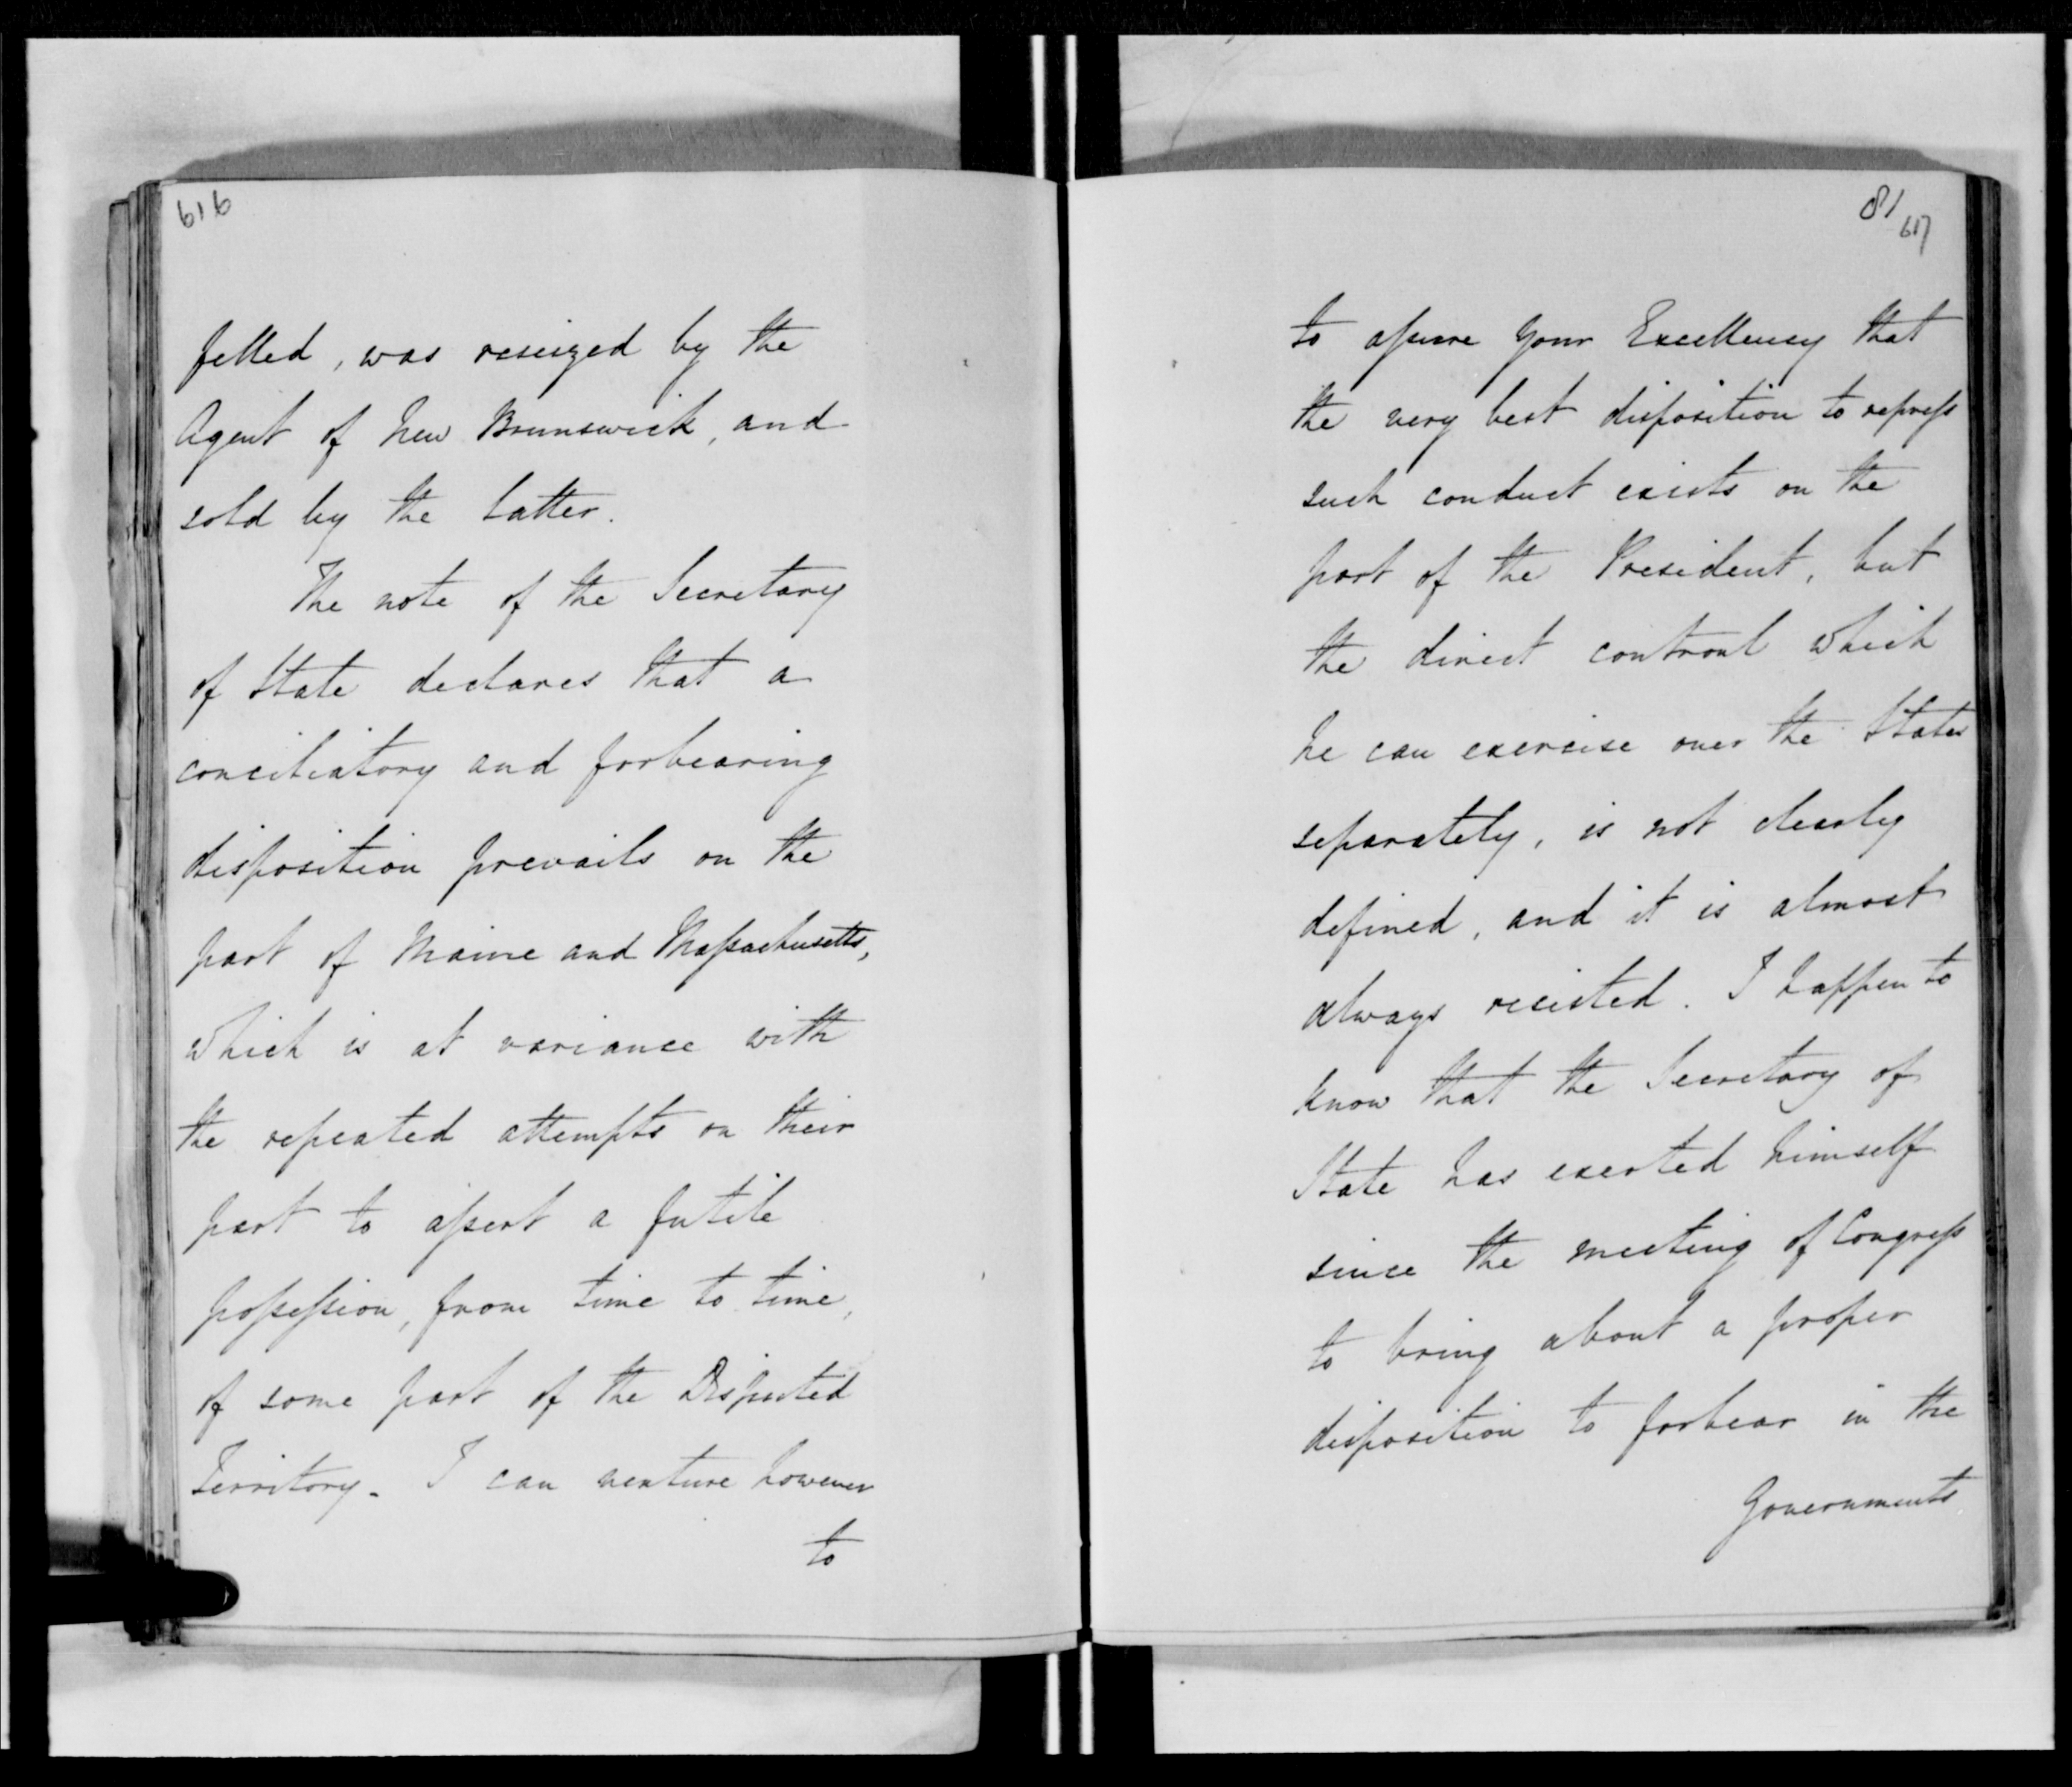 616
felled, was reseized by the
Agent of New Brunswick, and
sold by the latter.
The note of the Secretary
of State declares that a
conciliatory and forbearing
disposition prevails on the
part of Maine and Massachusetts,
which is at variance with
the repeated attempts on their
part to assert a futile
possession, from time to time,
of some part of the Disputed
Territory. I can venture however
to
81
617
to assure Your Excellency that
the very best disposition to repress
such conduct exists on the
part of the President, but
the direct controul which
he can exercise over the States
separately, is not clearly
defined, and it is almost
always resisted. I happen to
know that the Secretary of
State has exerted himself
since the meeting of Congress
to bring about a proper
disposition to forbear in the
Governments